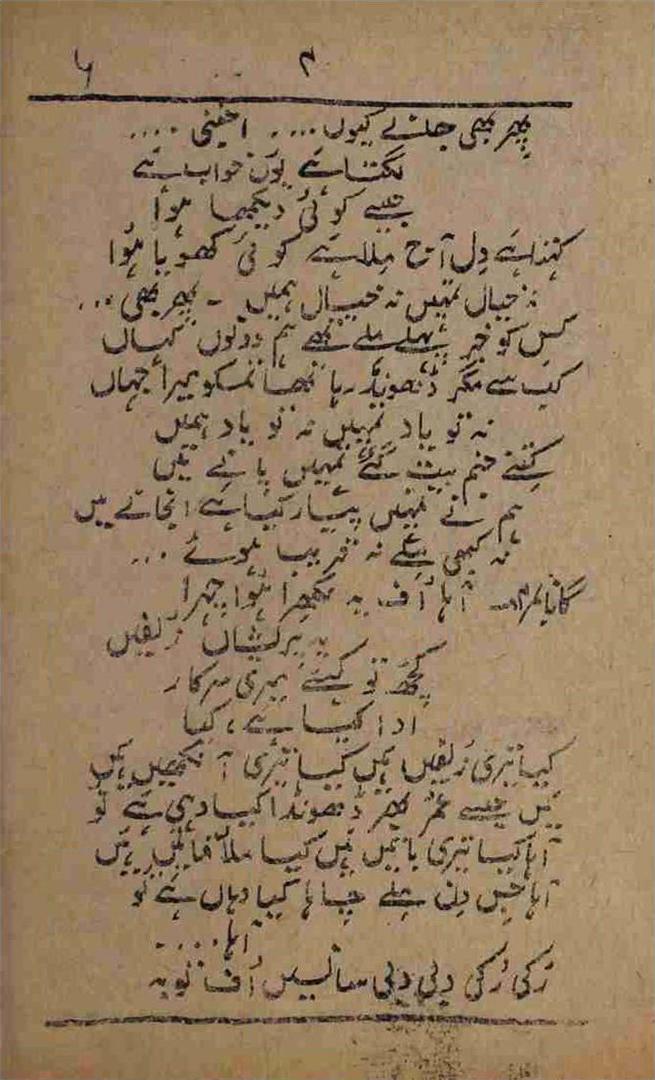 ۳ ۶
پھر بھی جلنے کیوں .... اجنبی ....
لگتا ہے یوں خواب ہے
جیسے کوئی دیکھا ہوا
کہتا ہے دل آج ملا ہے کوئی کھویا ہوا
نہ خیال تمہیں نہ خیال ہمیں ۔ پھر بھی ...
کس کو خبر پہلے ملے تھے ہم دونوں کہاں
کب سے مگر ڈھونڈ رہا تھا تمکو میرا جہاں
نہ تو یاد تمہیں نہ تو یاد ہمیں
کتنے جنم بیت گئے تمہیں پانے میں
ہم نے تمہیں پیار کیا ہے انجانے میں
نہ کبھی ملے نہ قریب ہوئے ...
گانا نمبر۳۔ آہا اُف یہ نکھرا ہوا چہرا
یہ پریشاں زلفیں
کچھ تو کہئے میری سرکار
ادا کیا ہے ، کیا
کیا تیری زلفیں ہیں کیا تیری آنکھیں ہیں
میں جسے عمر بھر ڈھونڈا کیا وہی ہے تو
آہا کیا تیری باتیں ہیں کیا ملاقاتیں ہیں
آہا جس دن سے چاہا کیا وہاں ہے تو
آہا ....
رُکی رُکی دبی دبی سانسیں اُف توبہ